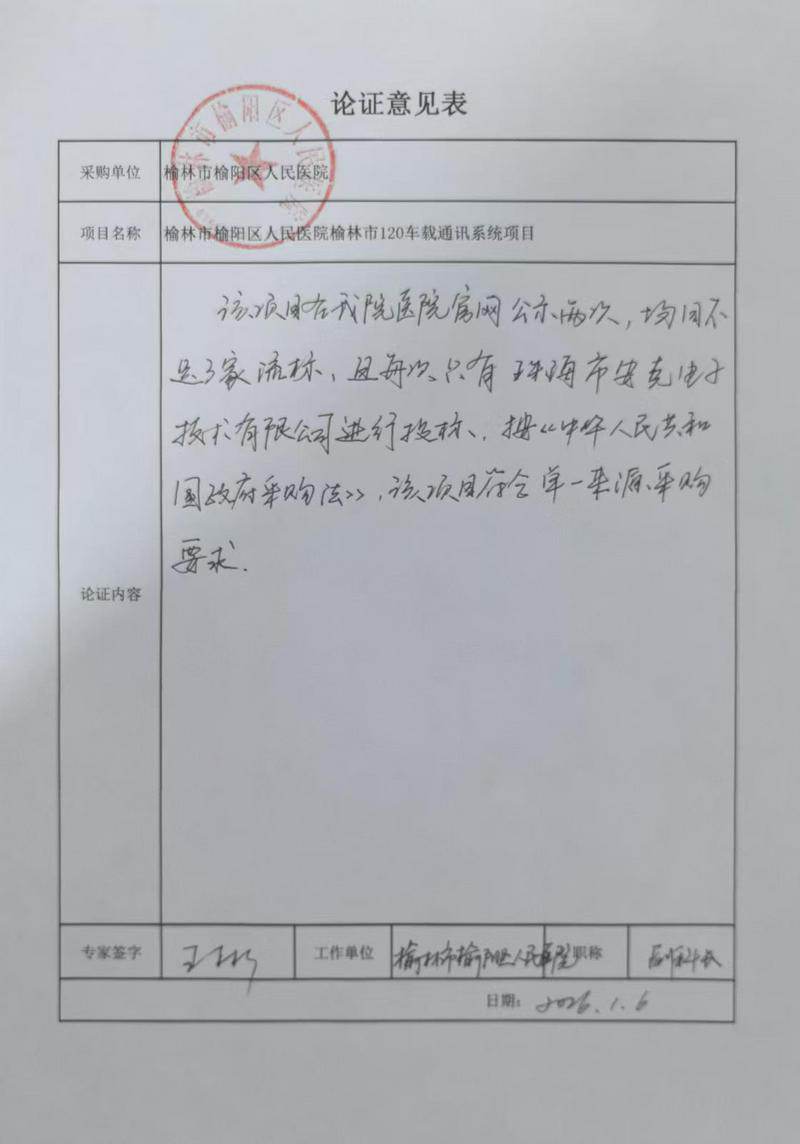 论证意见表
采购单位 榆林市榆阳区人民医院
项目名称 榆林市榆阳区人民医院榆林市120车载通讯系统项目
论证内容
该项目在我院医院官网公示两次，均因不
足3家流标，且每次只有珠海市安克电子
技术有限公司进行投标，按《中华人民共和
国政府采购法》，该项目符合单一来源采购
要求.
专家签字 工作单位 榆林市榆阳区人民医院 职称 科长
日期： 2026.1.6